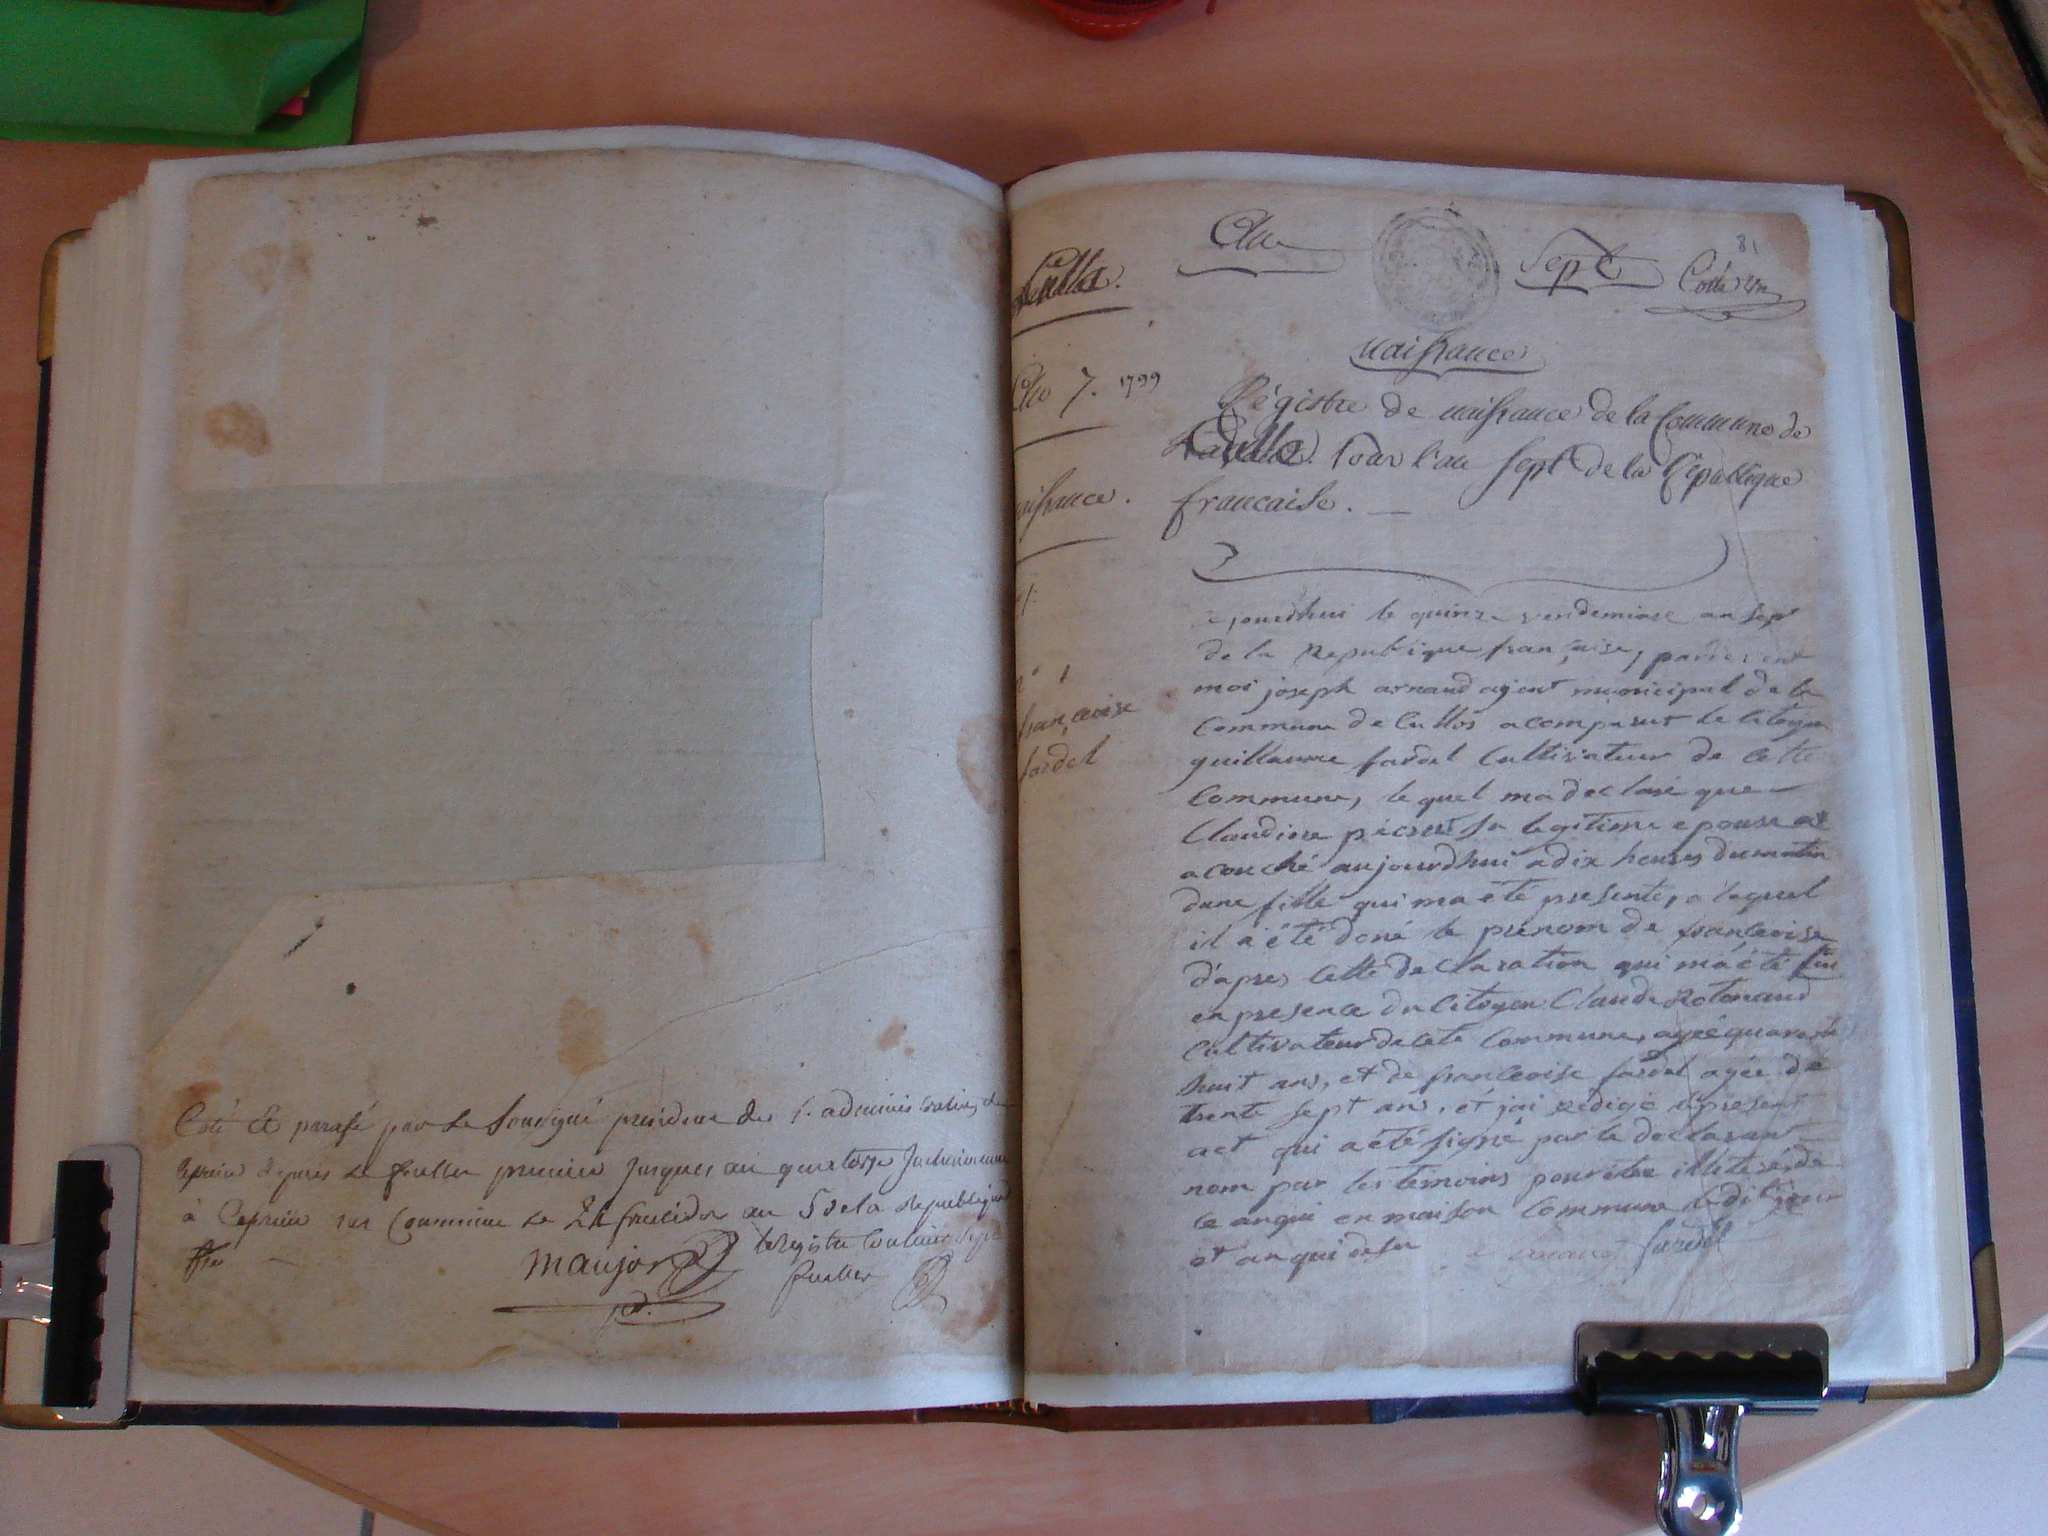 Coté & parafé par le Soussigné president de l'administration
depuis le feuillet premier jusques au quatorze
à Ceyrieu ce 21 fructidor an 5 de la Republique
le Registre Contient Sept
maujon
feuillets
Culloz.
An 7. 1799
naissance.
n° 1
françoise
fardel
An
Sept
81
Cotté un
naissance
Régistre de naissance de la Commune de
Culloz. Pour l'an sept de la République
francaise.
jourdhui le quinze vendemiaire an sept
de la Republique française, pardevent
moi joseph arnaud agent municipal de la
Commune de Cullos a comparut le Citoyen
guillaume fardel Cultivateur de cette
Commune, le quel ma declaré que
Claudine pécret sa legitime epouse a
a couché aujourdhui a dix heures du matin
dune fille qui ma été presenté, a laquel
il a été doné le prénom de franceoise
d'apres cette declaration qui m'a été
en presence du Citoyen Claude Rotonaud
Cultivateur de cete Commune, ageé quarante
huit ans, et de franceoise fardel agée de
trente sept ans, et j'ai redigé le present
act qui a été signé par le declarant
nom par les temoins pour etre illiteré, de
ce anqui en maison Commune le dit jour
et an qui desu
fardel